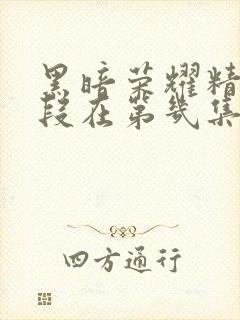 黑暗荣耀精
段在第几集
四方通行